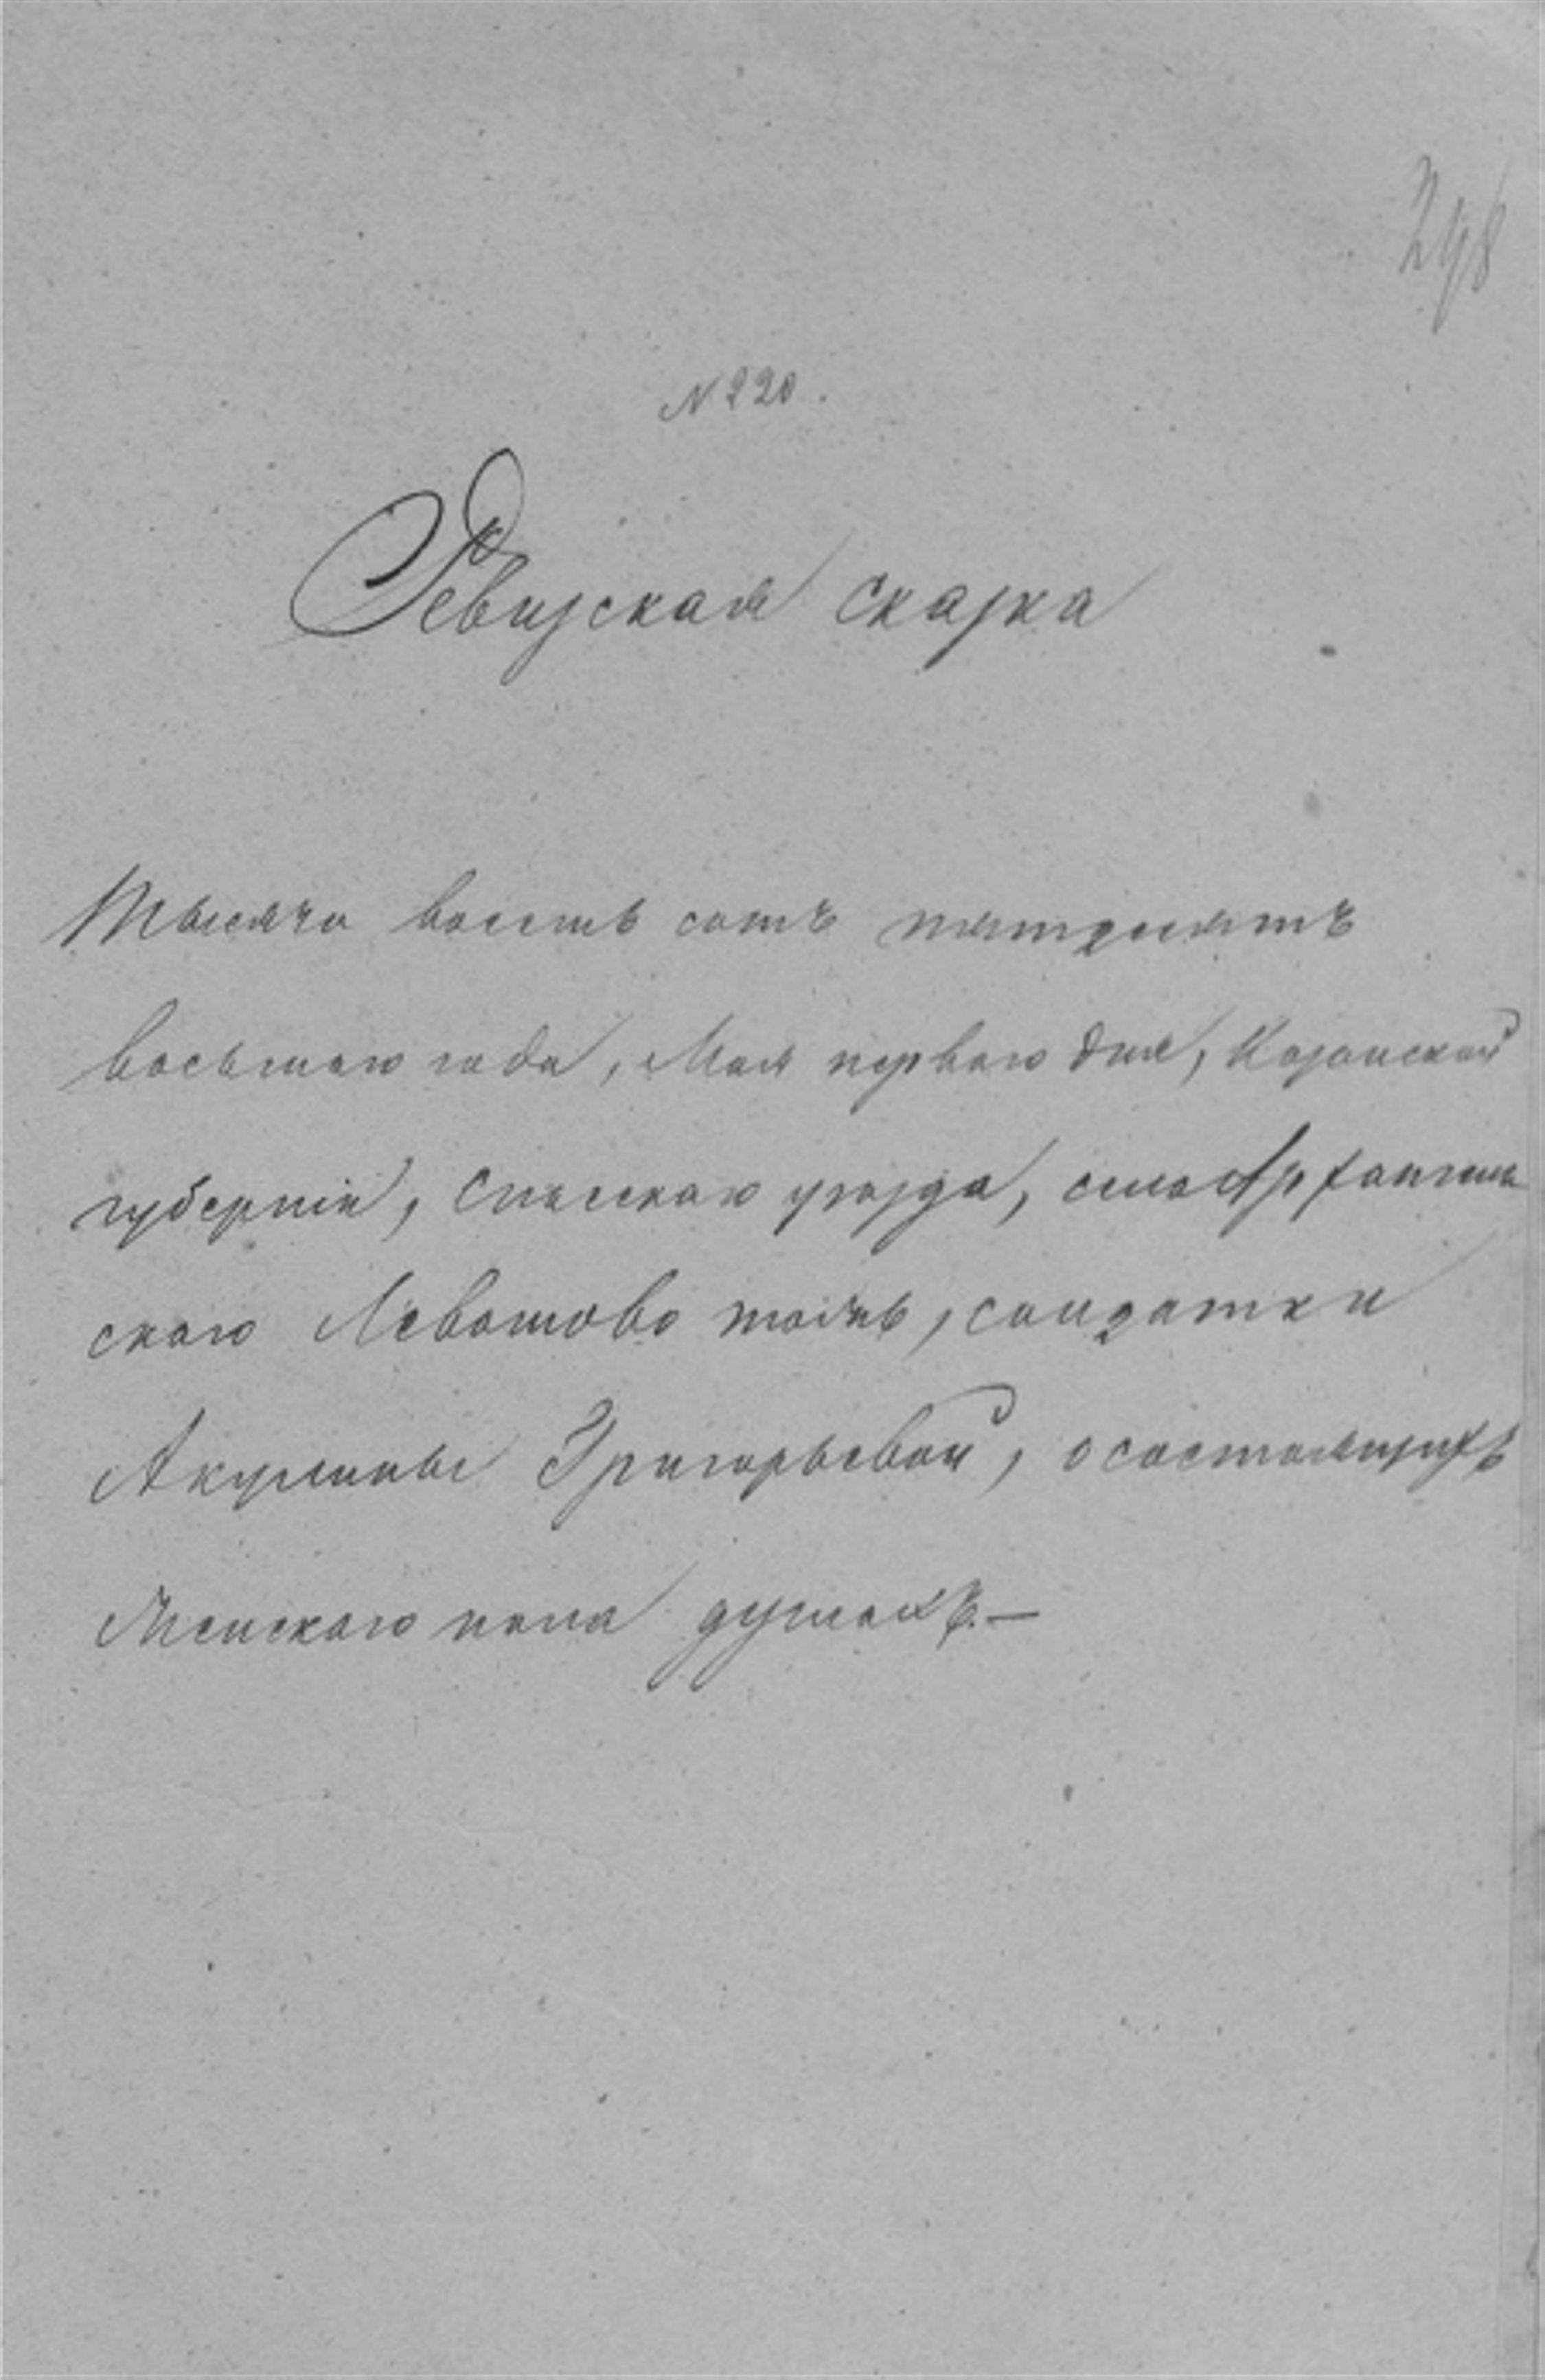 298
N 220.
Ревизская сказка
Тысяча восемь сотъ пятьдесятъ
восьмаго года, Мая перваго дня, Казанской
губерніи, Спасскаго уезда, села Архангель
скаго Левашово тожъ, солдатки
Акулины Григорьевой, о состоящихъ
Женскаго пола душахъ.—